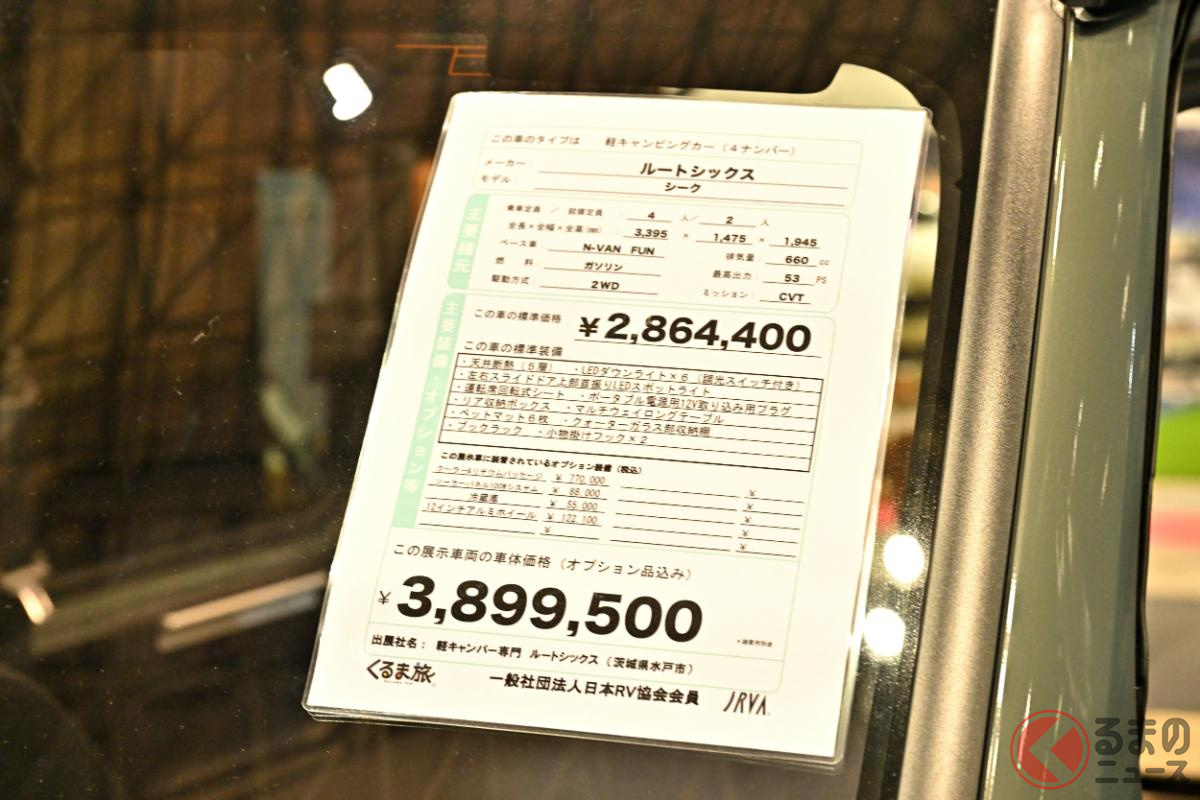 この車のタイプは 軽キャンピングカー(4ナンバー)
メーカー: ルートシックス
モデル: シーク
主要諸元
乗車定員 / 就寝定員 : 4 人/ 2 人
全長×全幅×全高(mm) : 3,395 × 1,475 × 1,945
ベース車: N-VAN FUN 排気量: 660 cc
燃 料: ガソリン 最高出力: 53 PS
駆動方式: 2WD ミッション: CVT
主要装備・オプション等
この車の標準価格 ¥2,864,400
この車の標準装備
・天井断熱(5層) ・LEDダウンライト×6(調光スイッチ付き)
・左右スライドドア上部首振りLEDスポットライト
・運転席回転式シート ・ポータブル電源用12V取り込み用プラグ
・リア収納ボックス ・マルチウェイロングテーブル
・ベットマット6枚 ・クォーターガラス部収納棚
・ブックラック ・小物掛けフック×2
この展示車に装着されているオプション装備(税込)
クーラー&リチウムパッケージ ¥ 770,000 ¥
ソーラーパネル100Wシステム ¥ 88,000 ¥
冷蔵庫 ¥ 55,000 ¥
12インチアルミホイール ¥ 122,100 ¥
¥ ¥
この展示車両の車体価格(オプション品込み)
¥ 3,899,500
*諸費用別途
出展社名: 軽キャンパー専門 ルートシックス(茨城県水戸市)
くるま旅 一般社団法人日本RV協会会員 JRVA
くるまのニュース